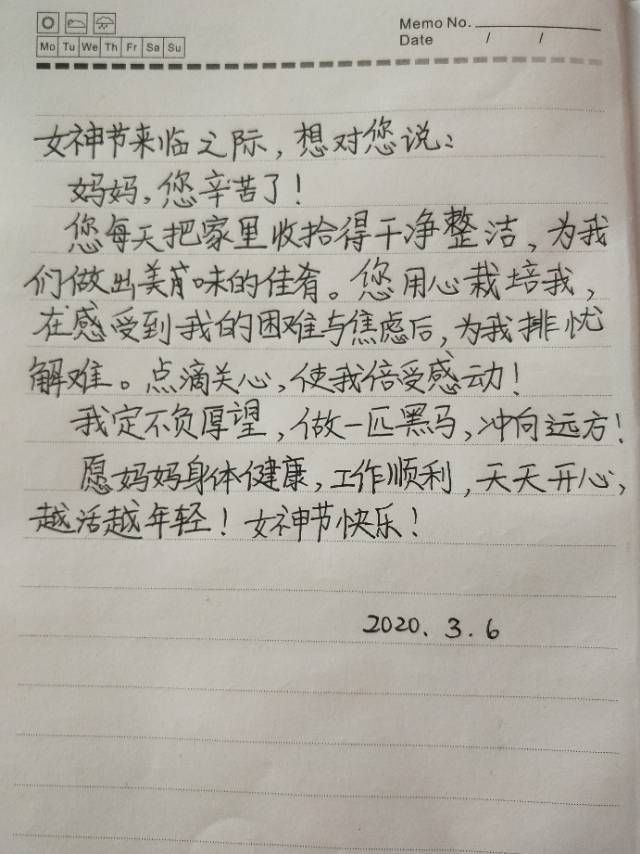 Memo No.
Date / /
Mo Tu We Th Fr Sa Su
女神节来临之际，想对您说：
妈妈，您辛苦了！
您每天把家里收拾得干净整洁，为我
们做出美味的佳肴。您用心栽培我，
在感受到我的困难与焦虑后，为我排忧
解难。点滴关心，使我倍受感动！
我定不负厚望，做一匹黑马，冲向远方！
愿妈妈身体健康，工作顺利，天天开心，
越活越年轻！女神节快乐！
2020.3.6